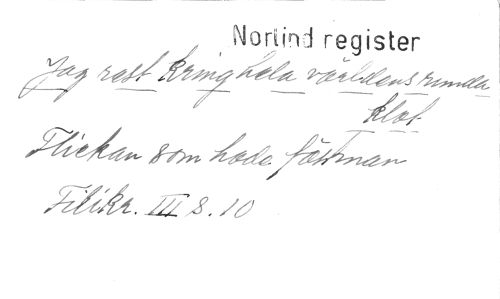 Norlind register
Jag rest kring hela världens runda
klot
Flickan som hade fästman
Filikr. III s. 10